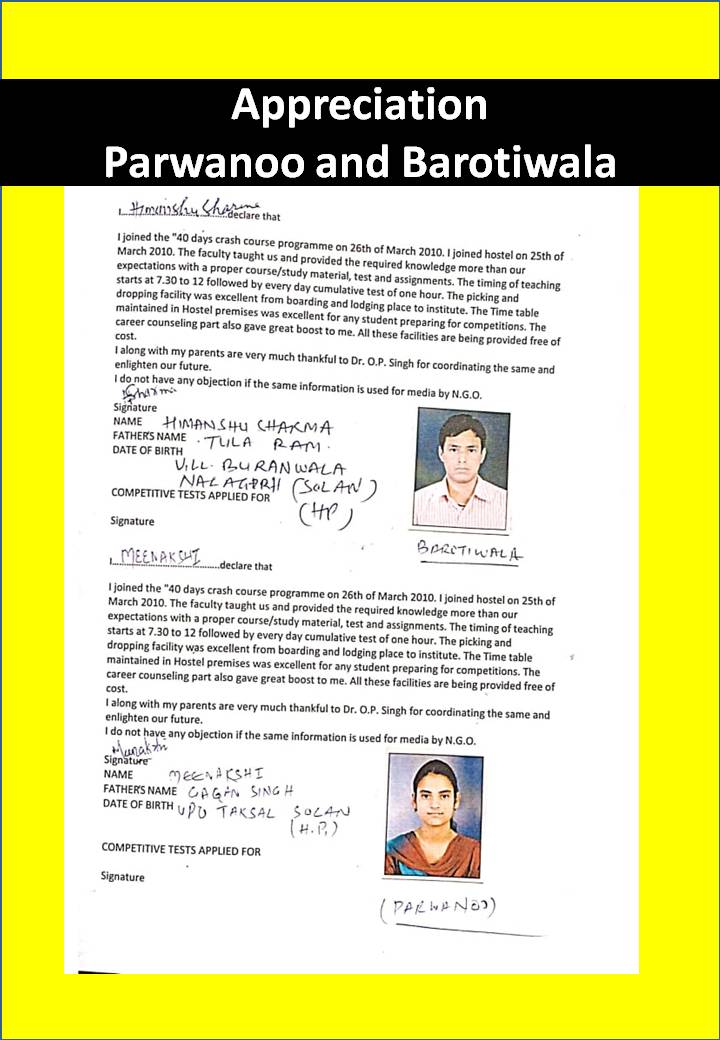 Appreciation
Parwanoo and Barotiwala
I....Himanshu Sharma....declare that
I joined the "40 days crash course programme on 26th of March 2010. I joined hostel on 25th of
March 2010. The faculty taught us and provided the required knowledge more than our
expectations with a proper course/study material, test and assignments. The timing of teaching
starts at 7.30 to 12 followed by every day cumulative test of one hour. The picking and
dropping facility was excellent from boarding and lodging place to institute. The Time table
maintained in Hostel premises was excellent for any student preparing for competitions. The
career counseling part also gave great boost to me. All these facilities are being provided free of
cost.
I along with my parents are very much thankful to Dr. O.P. Singh for coordinating the same and
enlighten our future.
I do not have any objection if the same information is used for media by N.G.O.
Signature
NAME HIMANSHU SHARMA
FATHER'S NAME TULA RAM.
DATE OF BIRTH
VILL. BURANWALA
NALAGARH (SOLAN)
COMPETITIVE TESTS APPLIED FOR
(HP)
Signature
BAROTIWALA
I....MEENAKSHI....declare that
I joined the "40 days crash course programme on 26th of March 2010. I joined hostel on 25th of
March 2010. The faculty taught us and provided the required knowledge more than our
expectations with a proper course/study material, test and assignments. The timing of teaching
starts at 7.30 to 12 followed by every day cumulative test of one hour. The picking and
dropping facility was excellent from boarding and lodging place to institute. The Time table
maintained in Hostel premises was excellent for any student preparing for competitions. The
career counseling part also gave great boost to me. All these facilities are being provided free of
cost.
I along with my parents are very much thankful to Dr. O.P. Singh for coordinating the same and
enlighten our future.
I do not have any objection if the same information is used for media by N.G.O.
Meenakshi
Signature
NAME MEENAKSHI
FATHER'S NAME GAGAN SINGH
DATE OF BIRTH VPO TAKSAL SOLAN
(H.P.)
COMPETITIVE TESTS APPLIED FOR
Signature
(PARWANOO)